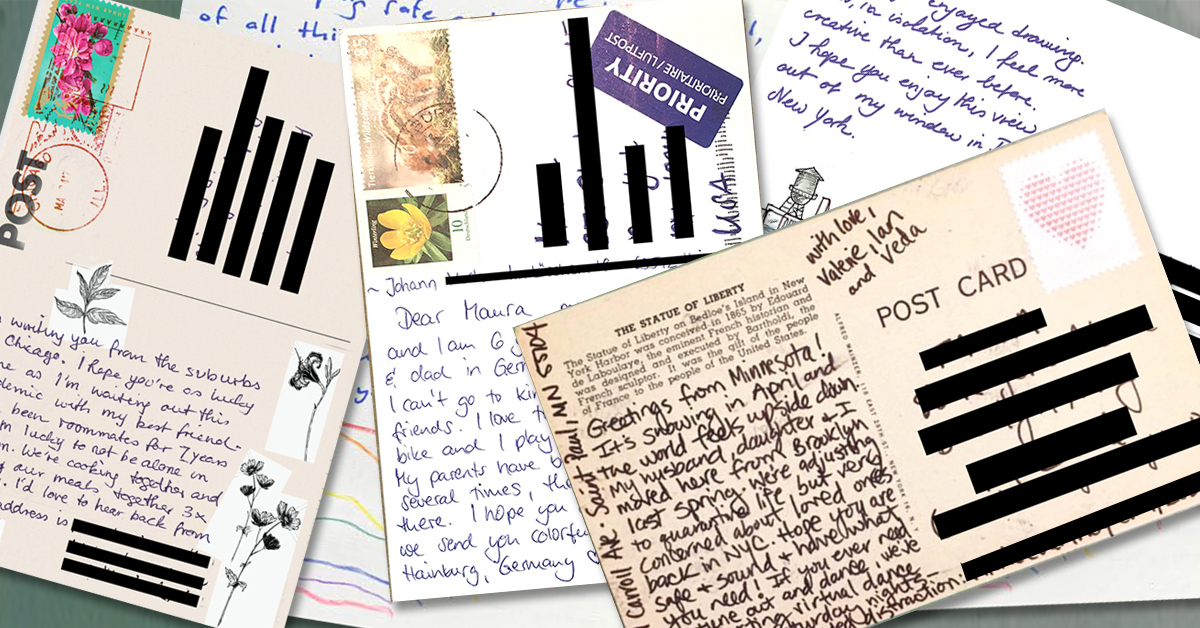 of all thi
enjoyed drawing.
in isolation, I feel more
creative than ever before.
I hope you enjoy this view
out of my window in
New York.
POST
ILL
writing you from the suburbs
Chicago. I hope you're as lucky
me as I'm waiting out this
demic with my best friend.
been roommates for 7 years
m lucky to not be alone in
We're cooking together and
our meals together 3x
I'd love to hear back from
address is
PRIORITY
PRIORITAIRE / LUFTPOST
Winterling
10
Deutschland
USA
~ Johann
Dear Maura
and I am 6 y
& dad in Ger
I can't go to kin
friends. I love t
bike and I play
My parents have b
several times, th
there. I hope you
we send you colorfu
Hainburg, Germany
with love,
Valerie, Ian
and Veda
POST CARD
THE STATUE OF LIBERTY
The Statue of Liberty on Bedloe's Island in New
York Harbor was conceived in 1865 by Edouard
de Laboulaye, the eminent French historian and
was designed and executed by Bartholdi, the
French sculptor. It was the gift of the people
of France to the people of the United States.
ALFRED MAINZER
Carroll Ave. Saint Paul, MN 55104
Greetings from Minnesota!
It's snowing in April and
the world feels upside down.
My husband, daughter & I
moved here from Brooklyn
last spring. We're adjusting
to quarantine life but very
concerned about loved ones
back in NYC. Hope you are
safe & sound & have what
you need! If you ever need
tune out and dance, we've
virtual dance
Saturday nights
distraction: